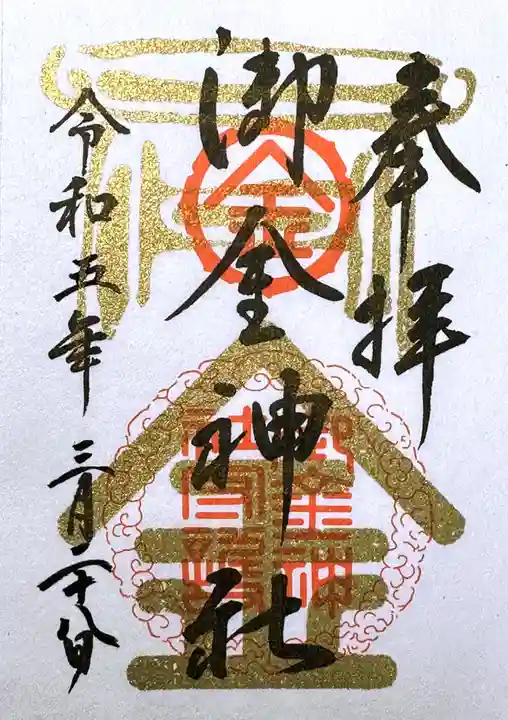 奉拝
御金神社
令和五年三月二十八日
金